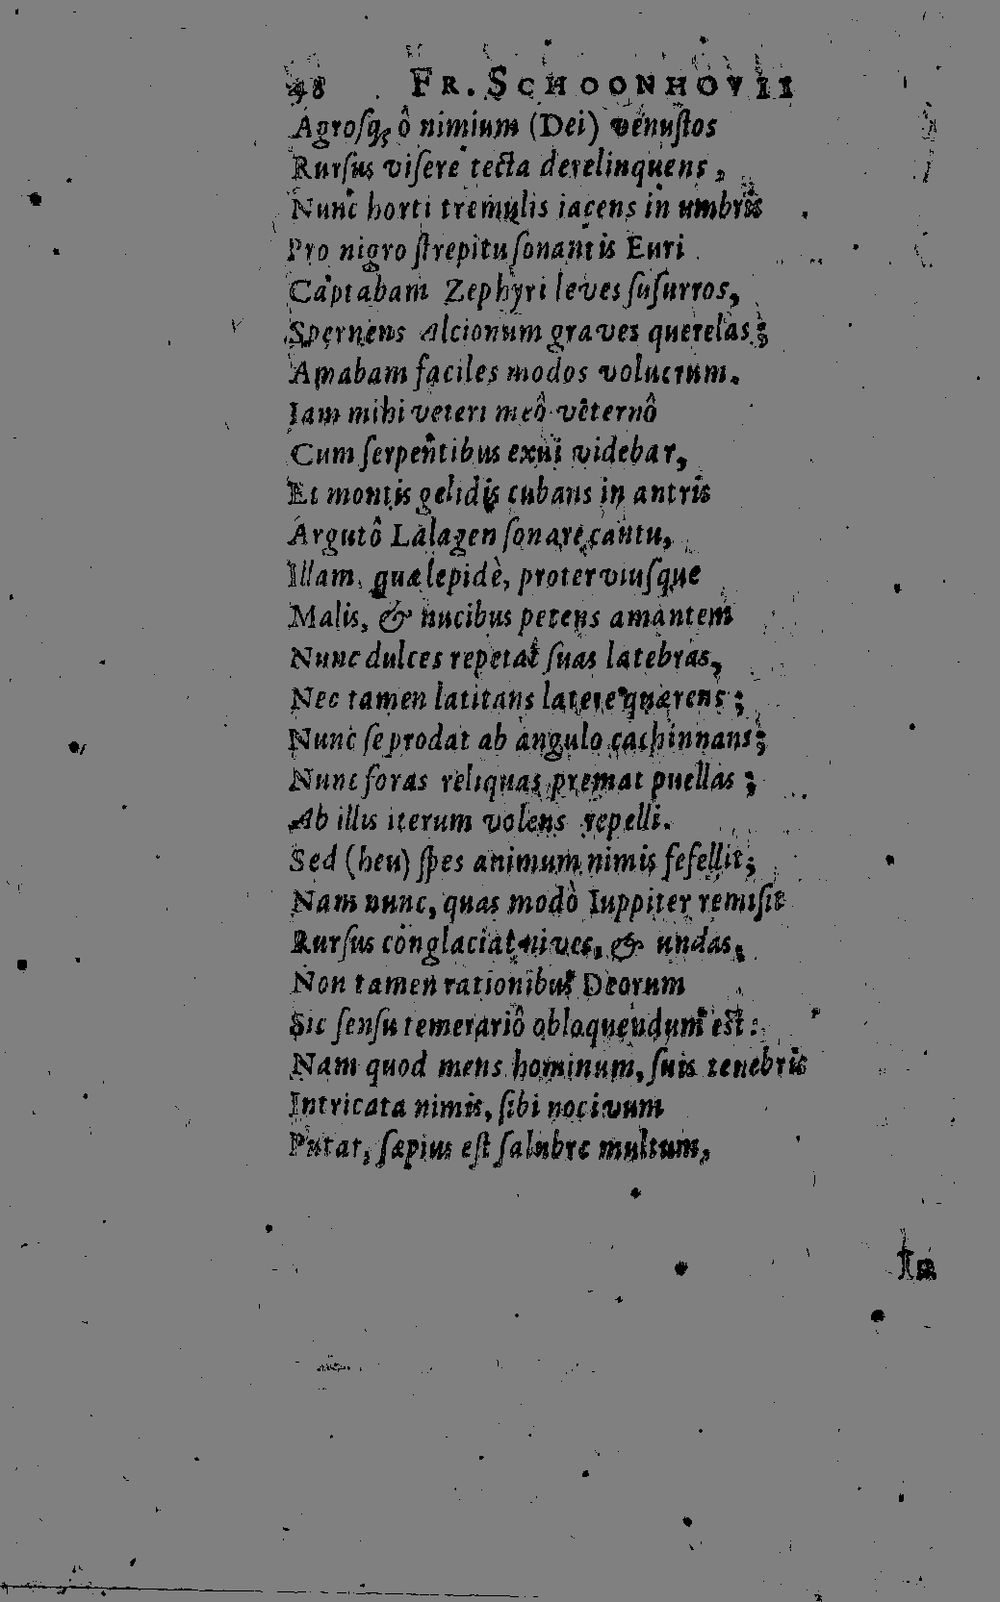 98 FR. SCHOONHOVII
Agrosq; ô nimium (Dei) venustos
Rursus visere tecta derelinquens,
Nunc horti tremulis iacens in umbris
Pro nigro strepitu sonantis Euri
Captabam Zephyri leves susurros,
Spernens Alcionum graves querelas;
Amabam faciles modos volucrum.
Iam mihi veteri meô vêternô
Cum serpentibus exui videbar,
Et montis gelidis cubans in antris
Argutô Lalagen sonare cantu,
Illam, quæ lepidè, proterviusque
Malis, & nucibus petens amantem
Nunc dulces repetat suas latebras,
Nec tamen latitans latere quærens;
Nunc se prodat ab angulo cachinnans;
Nunc foras reliquas premat puellas;
Ab illis iterum volens repelli.
Sed (heu) spes animum nimis fefellit;
Nam nunc, quas modò Iuppiter remisit
Rursus conglaciat nives, & undas,
Non tamen rationibus Deorum
Sic sensu temerariô obloquendum est:
Nam quod mens hominum, suis tenebris
Intricata nimis, sibi nocivum
Putat, sæpius est salubre multum,